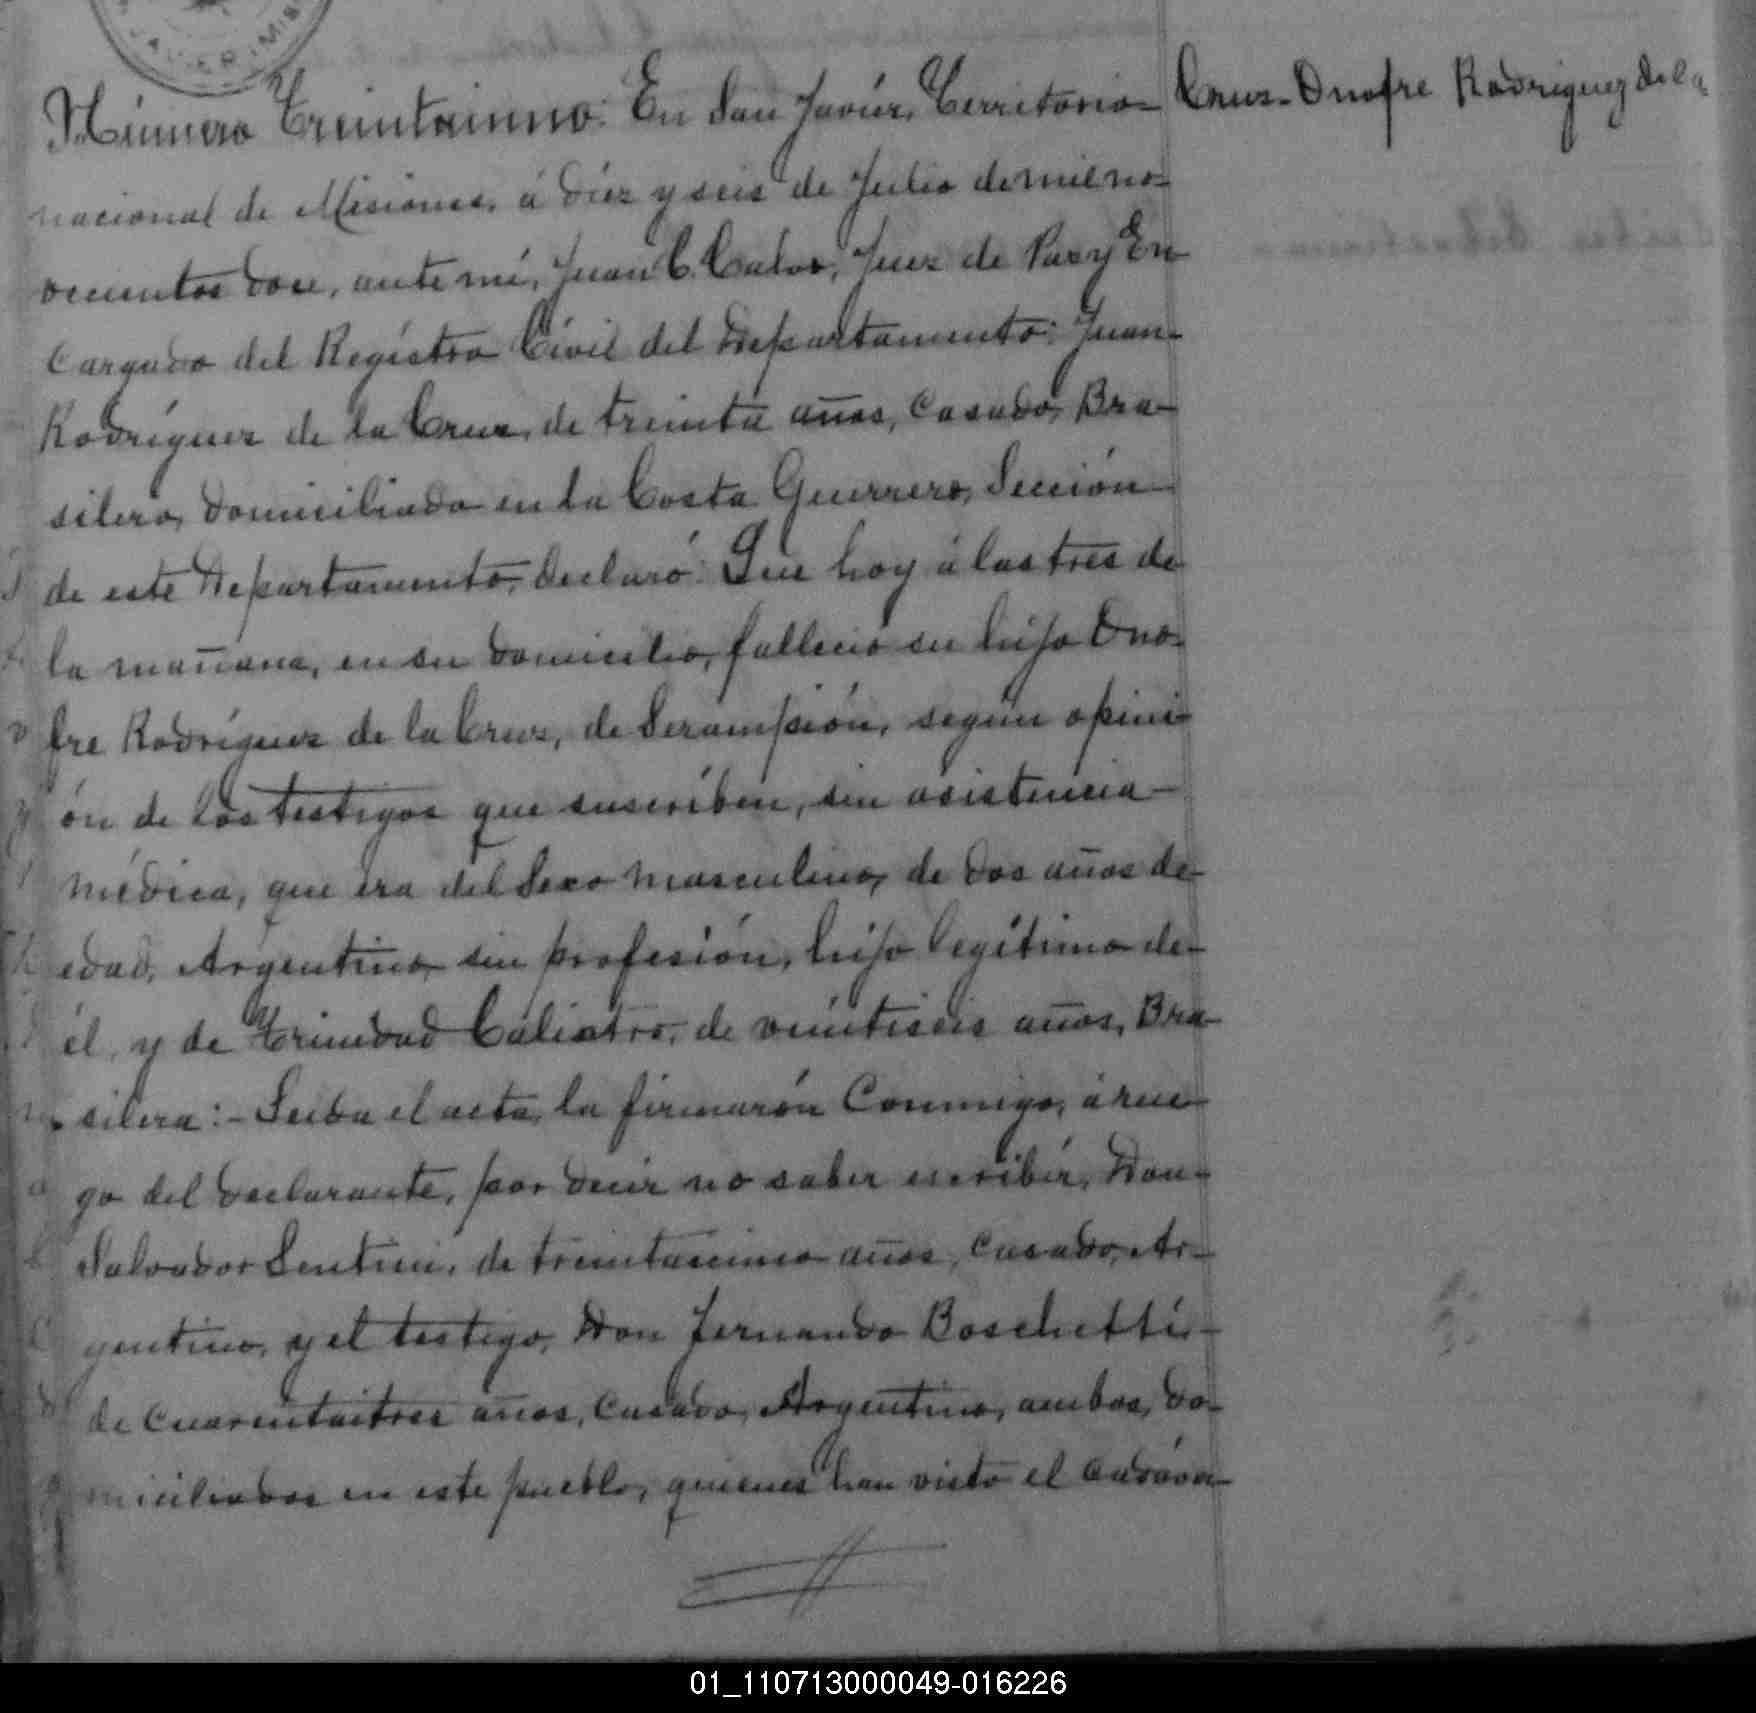 AVIER (MIS
Número Treintaiuno: En San Javiér, Territorio-
Cruz- Onofre Rodriguez de la
nacional de Misiones, á diez y seis de Julio de mil no-
vecientos doce, ante mí, Juan C. Calvo, Juez de Paz y En-
cargado del Regístro Civíl del Departamento: Juan-
Rodríguez de la Cruz, de treinta años, Casado, Bra-
silero, domiciliado en la Costa Guerrero, Sección-
de este Departamento, declaró: Que hoy á las tres de
la mañana, en su domicilio, falleció su hijo Ono-
fre Rodríguez de la Cruz, de Serampión, según opini-
ón de los testigos que suscríben, sin asistencia-
médica, que era del Sexo masculino, de dos años de-
edad, Argentino, sin profesión, hijo legítimo de-
él, y de Trinidad Calistro, de veintiseis años, Bra-
silera:- Leida el acta, la firmarón Conmigo, á rue-
go del declarante, por decir no saber escribír, Don-
Salvador Sentini, de treintaicinco años, Casado, Ar-
gentino, y el testigo, Don Fernando Boschetti-
de cuarentaitres años, Casado, Argentino, ambos, do-
miciliados en este pueblo, quienes han visto el cadáva-
01_110713000049-016226